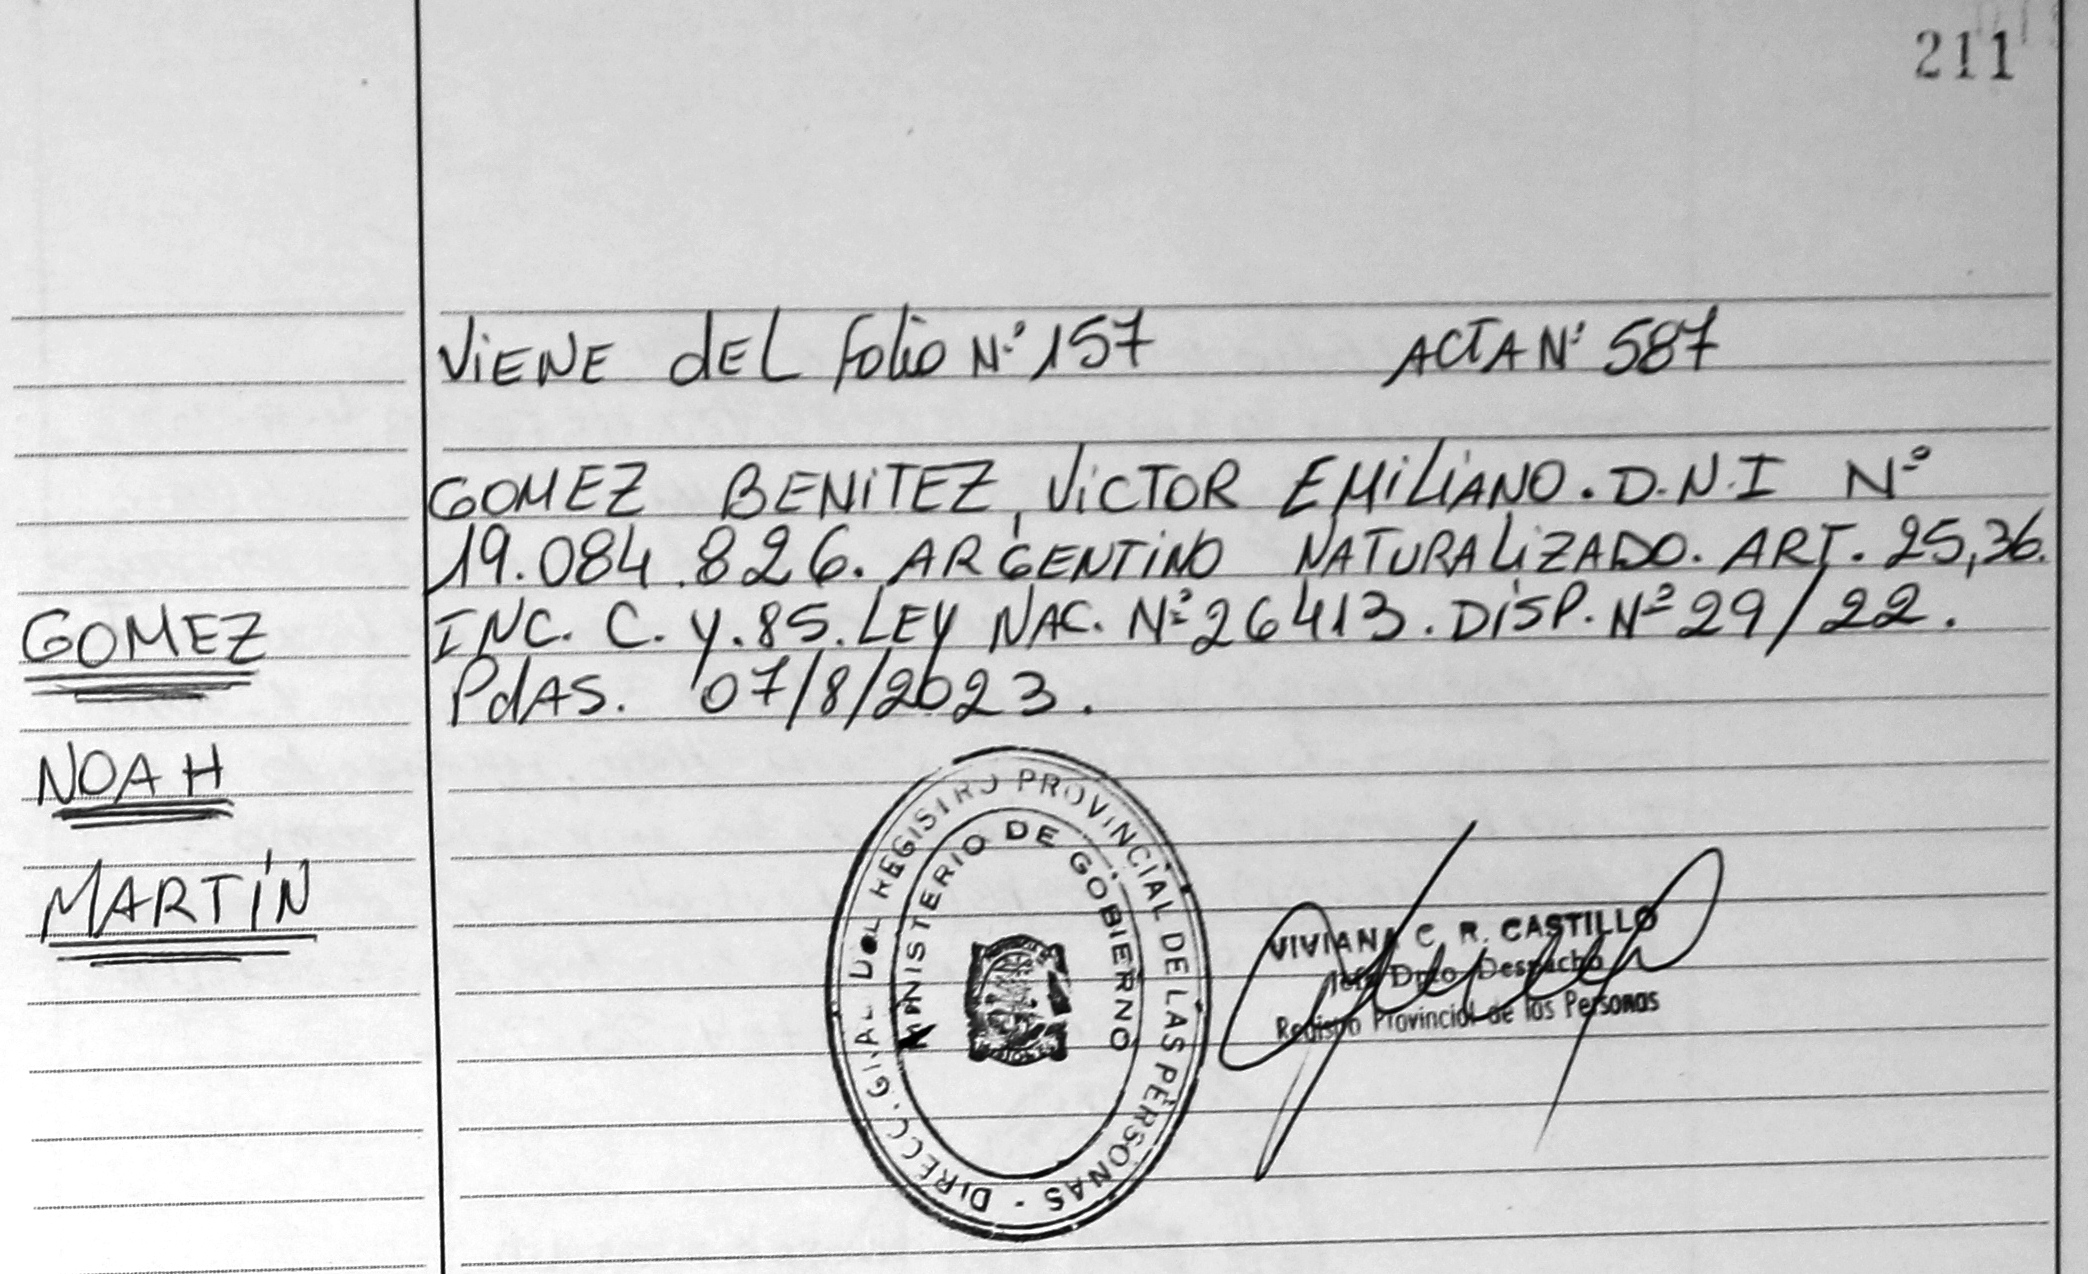 211
ViENE dEL folio Nº 157 ACTA Nº 587
GOMEZ BENiTEZ, ViCTOR EMiLiANO. D.N.I Nº
19.084.826. ARGENTiNO NATURALiZADO. ART. 25,36.
INC. C. y. 85. LEy NAC. Nº 26413. DiSP. Nº 29/22.
PdAS. 07/8/2023.
GOMEZ
NOAH
MARTÍN
DIRECC. GRAL DEL REGISTRO PROVINCIAL DE LAS PERSONAS -
MINISTERIO DE GOBIERNO
VIVIANA C. R. CASTILLO
Jefe Dpto Despacho
Registro Provincial de las Personas